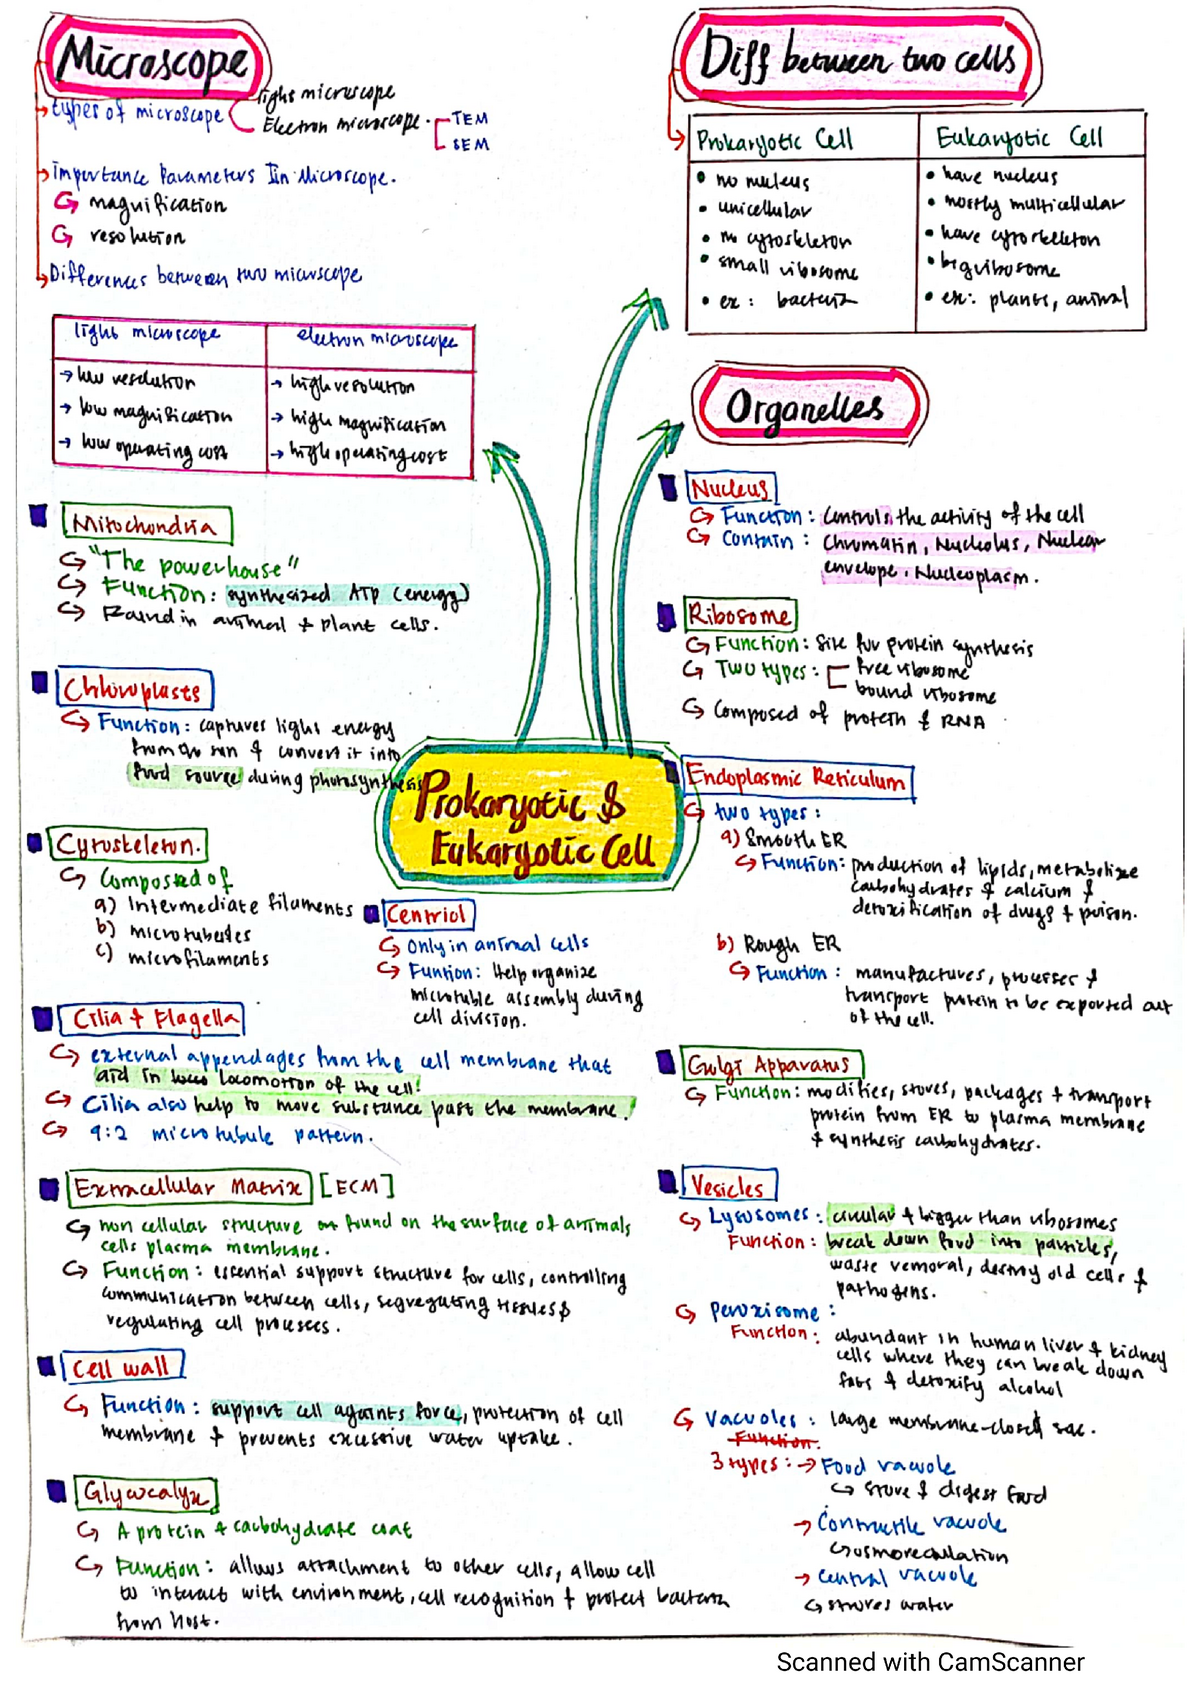 Microscope
types of microscope
light microscope
Electron microscope
TEM
SEM
Importance Parameters In Microscope.
magnification
resolution
Differences between two microscope
light microscope
electron microscope
→ low resolution
→ high resolution
→ low magnification
→ high magnification
→ low operating cost
→ high operating cost
Mitochondria
"The powerhouse"
Function: synthesized ATP (energy)
Found in animal + plant cells.
Chloroplasts
Function: captures light energy
from the sun & convert it into
food source during photosynthesis
Cytoskeleton.
Composed of
a) Intermediate filaments
b) microtubules
c) microfilaments
Centriol
Only in animal cells
Funtion: Help organize
microtuble assembly during
cell division.
Cilia + Flagella
external appendages from the cell membrane that
aid in locomotion of the cell!
Cilia also help to move substance past the membrane!
9:2 microtubule pattern.
Extracellular Matrix [ECM]
non cellular structure found on the surface of animals
cells plasma membrane.
Function: essential support structure for cells, controlling
communication between cells, segregating tissues &
regulating cell processes.
Cell wall
Function: support cell againts force, protection of cell
membrane + prevents excessive water uptake.
Glycocalyx
A protein + carbohydrate coat
Function: allows attachment to other cells, allow cell
to interact with environment, cell recognition + protect bacteria
from host.
Prokaryotic &
Eukaryotic Cell
Diff between two cells
Prokaryotic Cell
Eukaryotic Cell
• no nucleus
• have nucleus
• unicellular
• mostly multicellular
• no cytoskleton
• have cytoskleton
• small ribosome
• big ribosome
• ex: bacteria
• ex: plants, animal
Organelles
Nucleus
Function: Controls the activity of the cell
Contain: Chromatin, Nucleolus, Nuclear
envelope, Nucleoplasm.
Ribosome
Function: Site for protein synthesis
Two types:
free ribosome
bound ribosome
Composed of protein & RNA
Endoplasmic Reticulum
two types:
a) Smooth ER
Function: production of lipids, metabolize
carbohydrates & calcium &
detoxification of drugs + poison.
b) Rough ER
Function: manufactures, processes +
transport protein to be exported out
of the cell.
Golgi Apparatus
Function: modifies, stores, packages + transport
protein from ER to plasma membrane
& synthesis carbohydrates.
Vesicles
Lysosomes: circular + bigger than ribosomes
Function: break down food into particles,
waste removal, destroy old cells &
pathogens.
Peroxisome:
Function: abundant in human liver & kidney
cells where they can break down
fats & detoxify alcohol
Vacuoles: large membrane-closed sac.
Function:
3 types: → Food vacuole
store & digest food
→ Contractile vacuole
→ central vacuole
stores water
Scanned with CamScanner